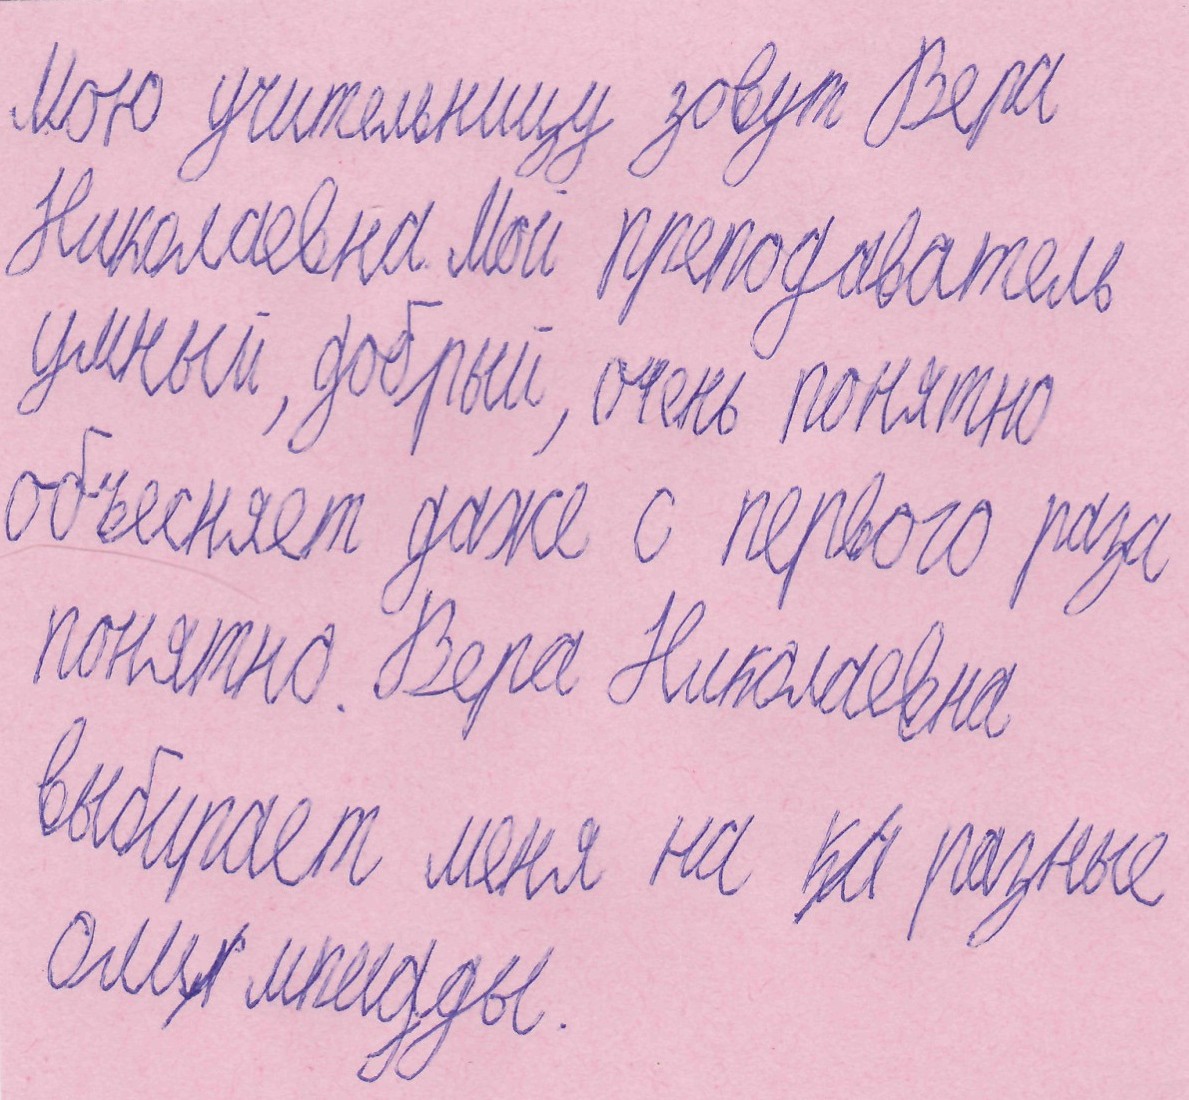 Мою учительницу зовут Вера
Николаевна. Мой преподаватель
умный, добрый, очень понятно
объесняет даже с первого раза
понятно. Вера Николаевна
выбирает меня на разные
олимпиады.